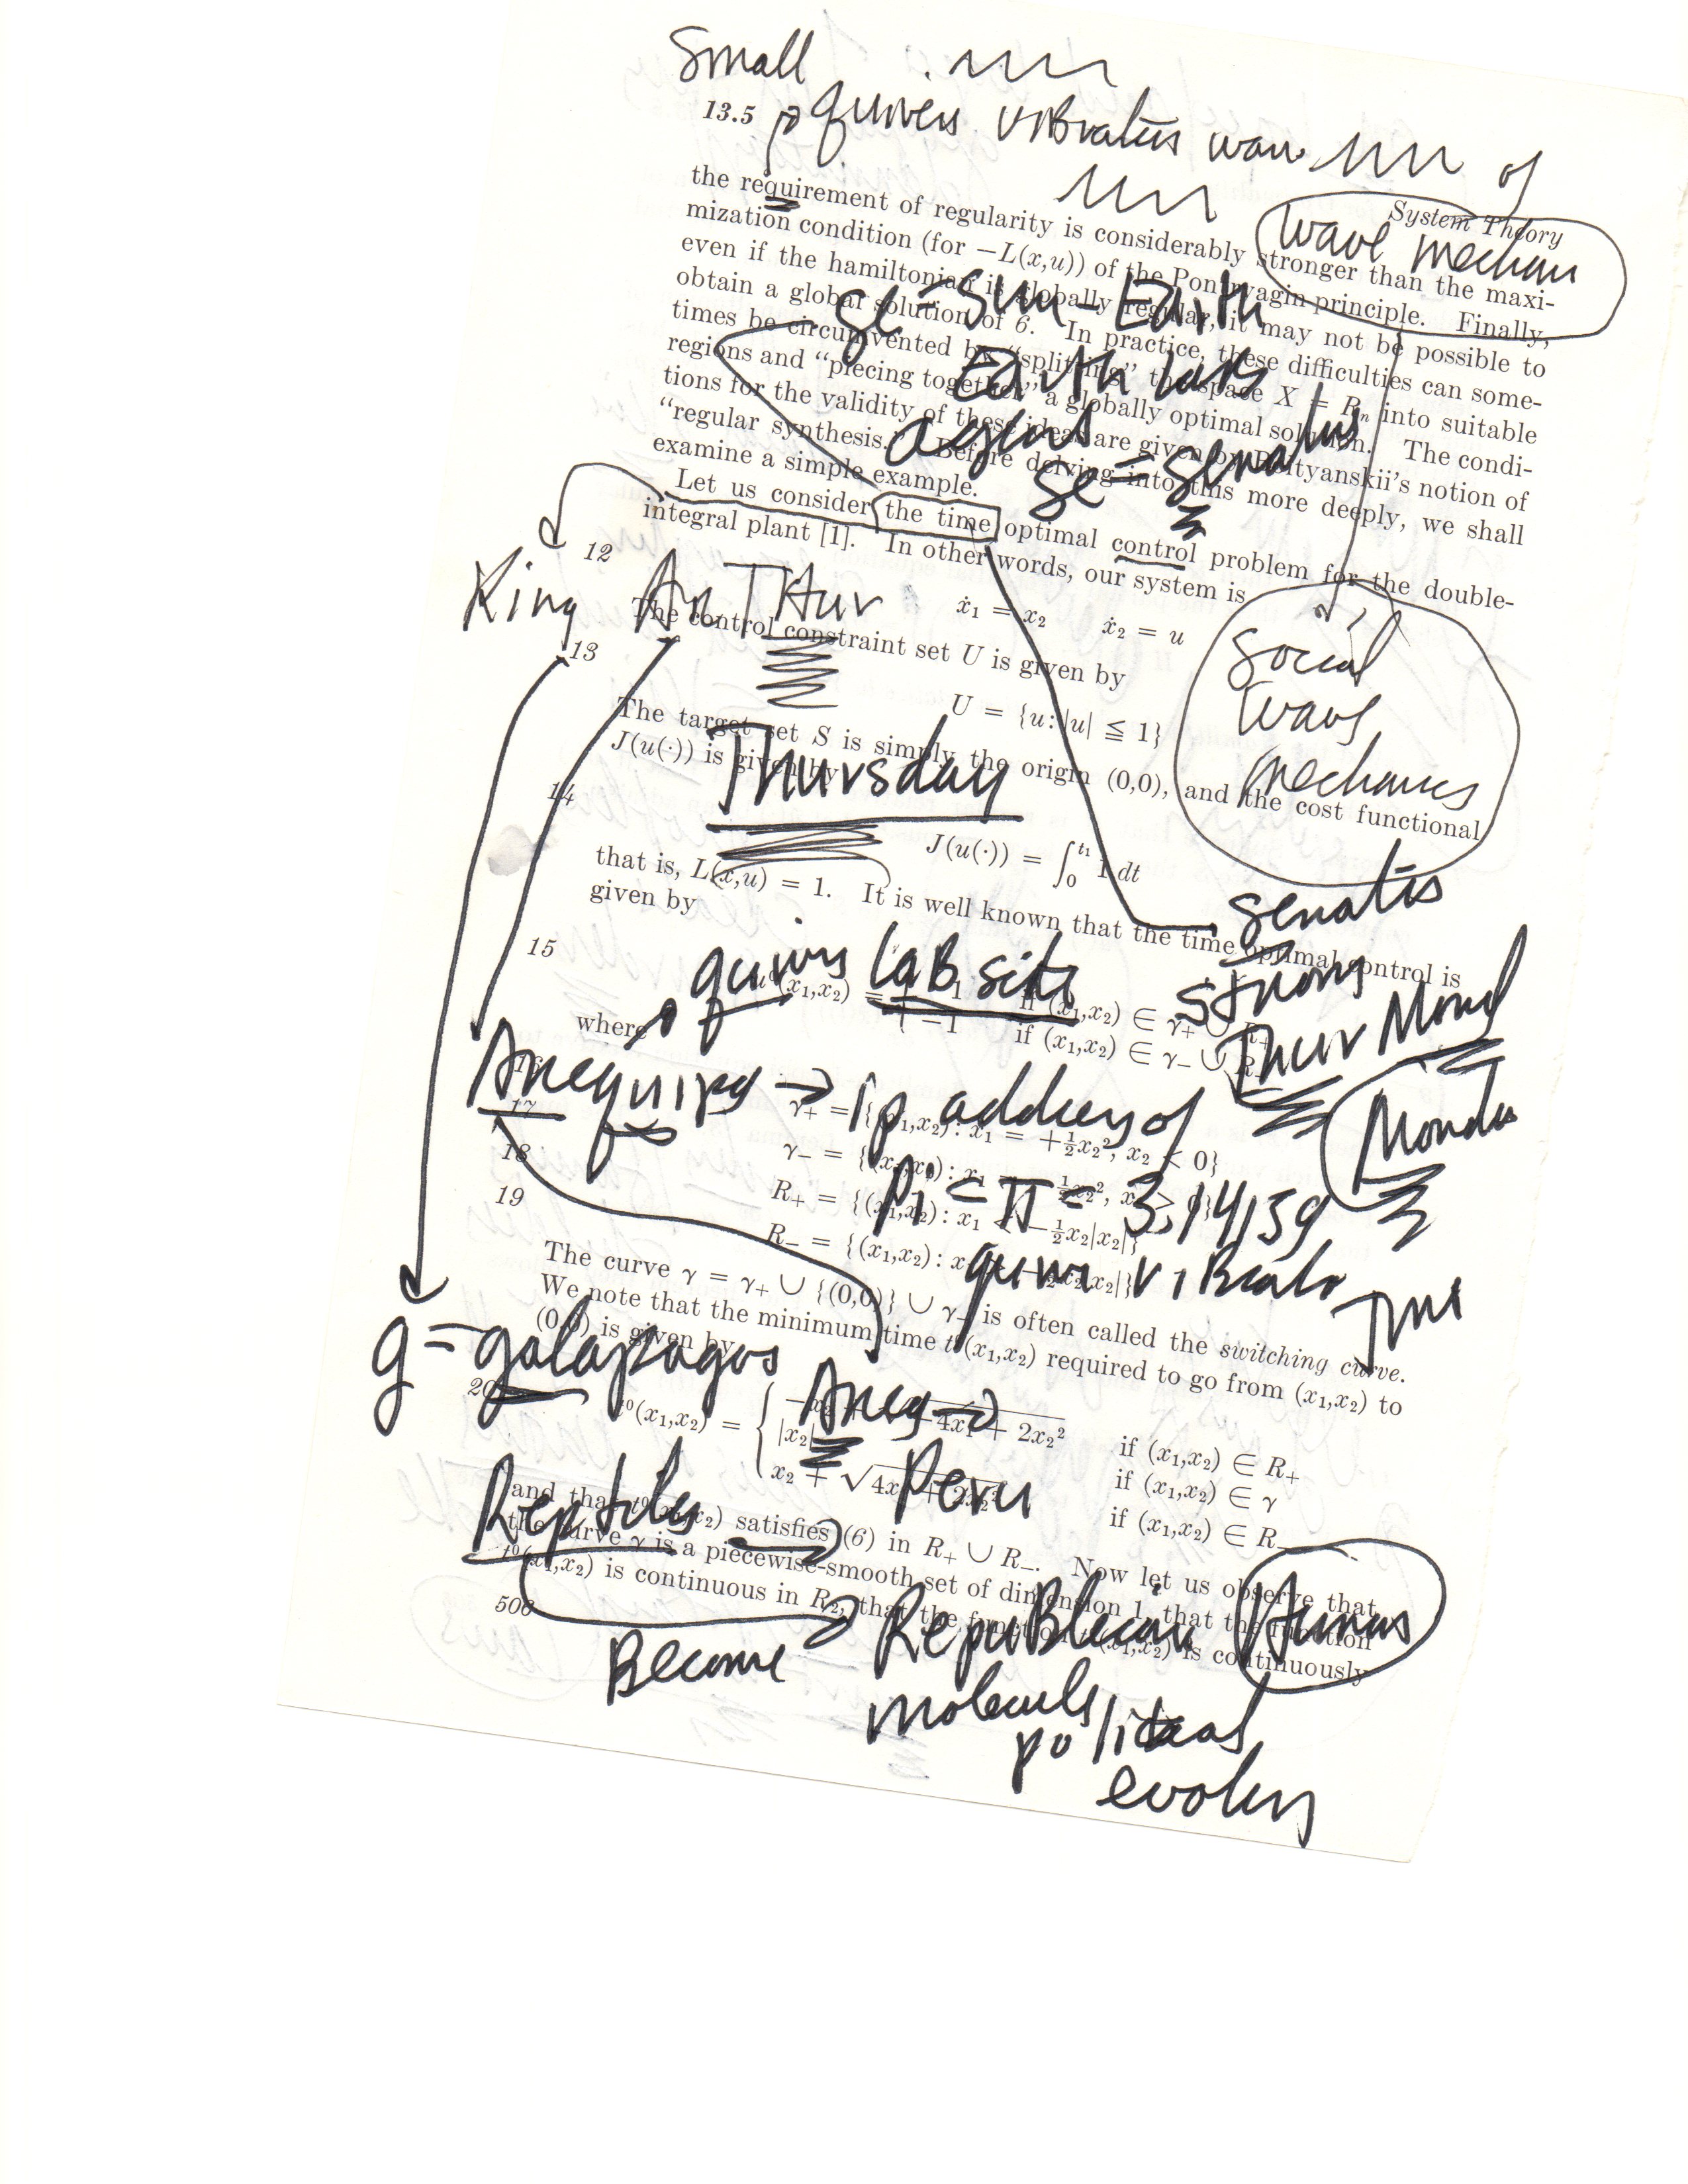 Small
13.5
quivers vibrates wave of
System Theory
wave mechan
the requirement of regularity is considerably stronger than the maxi-
mization condition (for −L(x,u)) of the Pontryagin principle. Finally,
even if the hamiltonian is globally regular, it may not be possible to
obtain a global solution of 6. In practice, these difficulties can some-
times be circumvented by “splitting” the space X = Rₙ into suitable
regions and “piecing together” a globally optimal solution. The condi-
tions for the validity of these ideas are given by Boltyanskii’s notion of
“regular synthesis.” Before delving into this more deeply, we shall
examine a simple example.
se = Sun - Earth
Earth labs
agent
se = senators
Let us consider the time optimal control problem for the double-
integral plant [1]. In other words, our system is
12
ẋ₁ = x₂ ẋ₂ = u
King ArTHur
The control constraint set U is given by
13
U = {u: |u| ≦ 1}
Social
wave
mechanics
The target set S is simply the origin (0,0), and the cost functional
J(u(·)) is given by
Thursday
14
J(u(·)) = ∫₀^{t₁} 1 dt
that is, L(x,u) = 1. It is well known that the time optimal control is
given by
senates
strong
15
quivers lab site
(x₁,x₂) = −1 if (x₁,x₂) ∈ γ₊ ∪ R₊
if (x₁,x₂) ∈ γ₋ ∪ R₋
where
Thur Mond
Monda
Arequipa → ip address of
17
γ₊ = {(x₁,x₂): x₁ = +½x₂², x₂ < 0}
18
γ₋ = {(x₁,x₂): x₁ = −½x₂², x₂ > 0}
Pi = π = 3.14159
19
R₊ = {(x₁,x₂): x₁ < −½x₂|x₂|}
R₋ = {(x₁,x₂): x₁ > −½x₂|x₂|}
quiver vibrate
The curve γ = γ₊ ∪ {(0,0)} ∪ γ₋ is often called the switching curve.
We note that the minimum time t⁰(x₁,x₂) required to go from (x₁,x₂) to
(0,0) is given by
g = galapagos
20
Areq →
Peru
t⁰(x₁,x₂) = { −x₂ + √−4x₁ + 2x₂² if (x₁,x₂) ∈ R₊
|x₂| if (x₁,x₂) ∈ γ
x₂ + √4x₁ + 2x₂² if (x₁,x₂) ∈ R₋
Reptiles
and that t⁰(x₁,x₂) satisfies (6) in R₊ ∪ R₋. Now let us observe that
the curve γ is a piecewise-smooth set of dimension 1, that the function
t⁰(x₁,x₂) is continuous in R₂, that the function t⁰(x₁,x₂) is continuously
506
Become Republican Humans
molecules
political
evolves